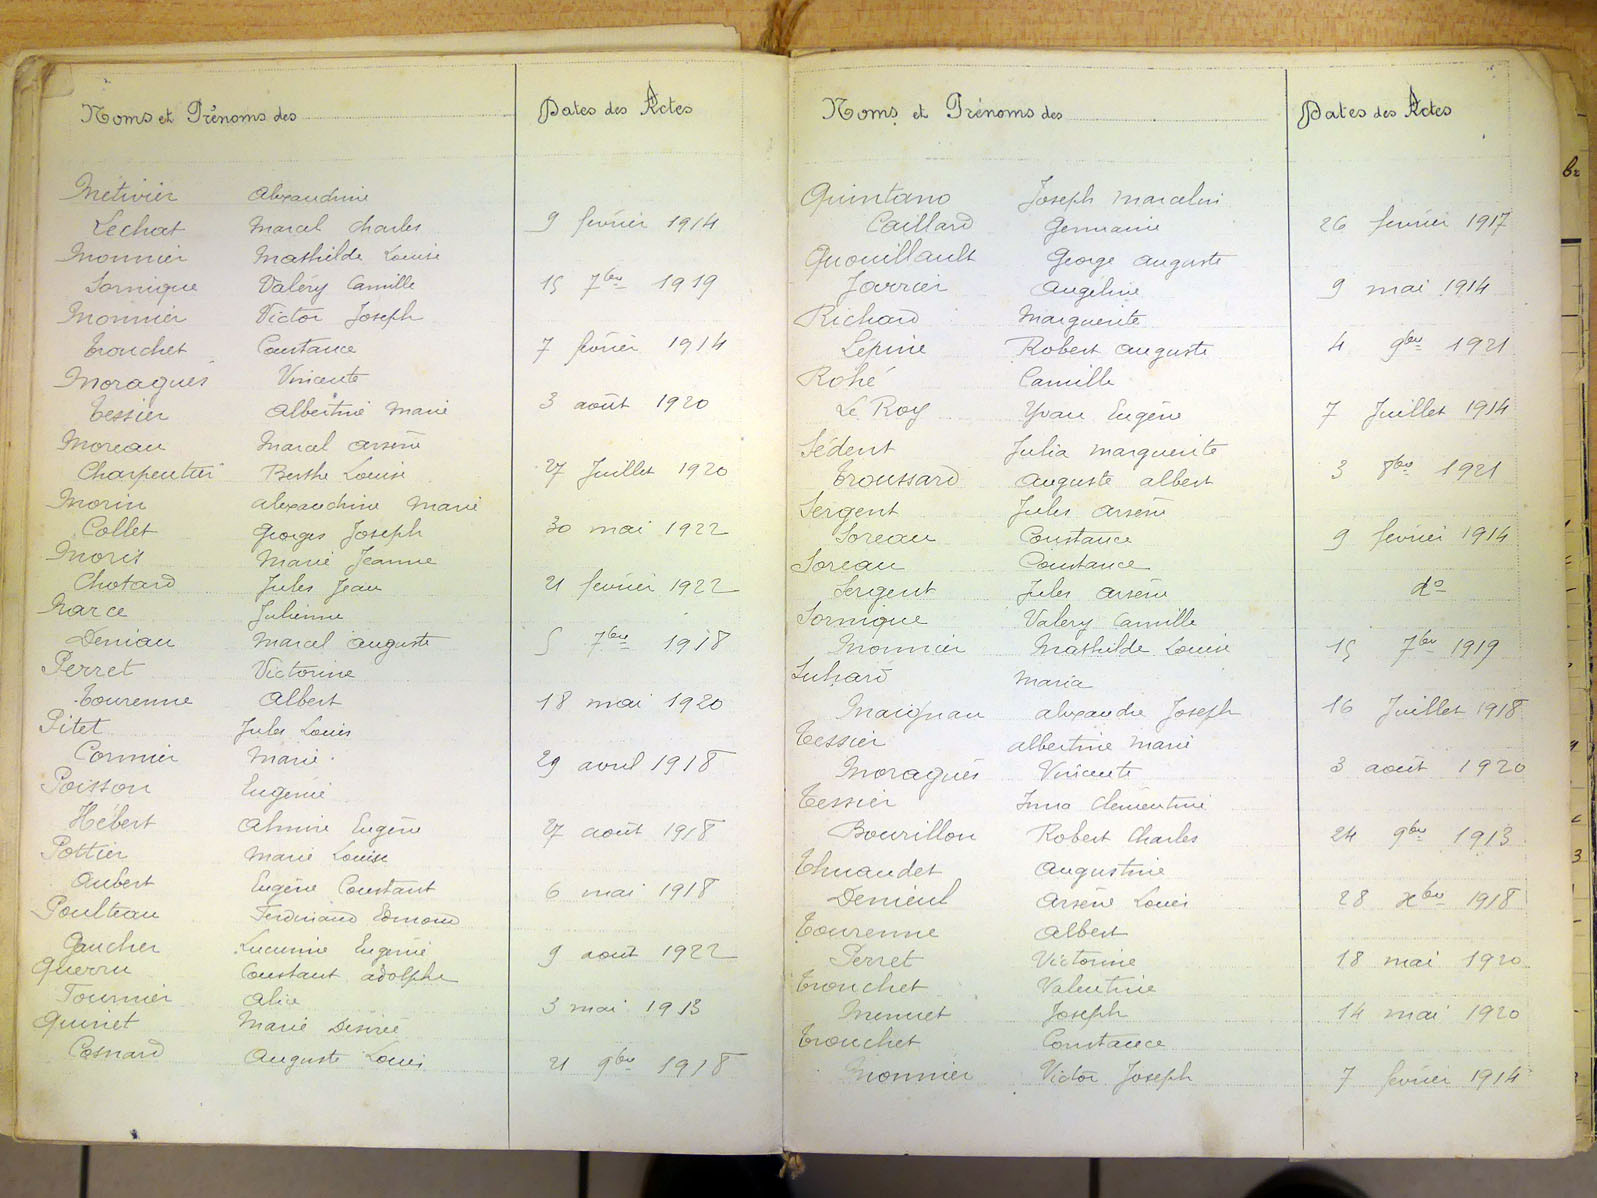 Noms et Prénoms des
Dates des Actes
Metivier Alexandrine
Lechat Marcel Charles 9 février 1914
Monnier Mathilde Louise
Sornique Valéry Camille 15 7bre 1919
Monnier Victor Joseph
Tronchet Constance 7 février 1914
Moraguès Vincente
Tessier Albertine Marie 3 août 1920
Moreau Marcel Arsène
Charpentier Berthe Louise 27 Juillet 1920
Morin Alexandrine Marie
Collet Georges Joseph 30 mai 1922
Moris Marie Jeanne
Chotard Jules Jean 21 février 1922
Narce Julienne
Deniau Marcel Auguste 5 7bre 1918
Perret Victorine
Tourenne Albert 18 mai 1920
Pitet Jules Louis
Cormier Marie 29 avril 1918
Poisson Eugénie
Hébert Almire Eugène 27 août 1918
Pottier Marie Louise
Aubert Eugène Constant 6 mai 1918
Poulteau Ferdinand Edmond
Gaucher Eugénie 9 août 1922
Querru Constant Adolphe
Fournier Alice 3 mai 1913
Quinet Marie Désirée
Cosnard Auguste Louis 21 9bre 1918
Noms et Prénoms des
Dates des Actes
Quintano Joseph Marcelin
Caillard Germaine 26 février 1917
Quouillault George Auguste
Jarrier Angéline 9 mai 1914
Richard Marguerite
Lépine Robert Auguste 4 9bre 1921
Rohé Camille
Le Roy Yvan Eugène 7 Juillet 1914
Sédent Julia Marguerite
Troussard Auguste Albert 3 8bre 1921
Sergent Jules Arsène
Soreau Constance 9 février 1914
Soreau Constance
Sergent Jules Arsène do
Sornique Valery Camille
Monnier Mathilde Louise 15 7bre 1919
Suhard Maria
Maignan Alexandre Joseph 16 Juillet 1918
Tessier Albertine Marie
Moraguès Vincente 3 août 1920
Tessier Irma Clémentine
Bourillon Robert Charles 24 9bre 1913
Thuaudet Augustine
Denieul Arsène Louis 28 xbre 1918
Tourenne Albert
Perret Victorine 18 mai 1920
Tronchet Valentine
Menuet Joseph 14 mai 1920
Tronchet Constance
Monnier Victor Joseph 7 février 1914